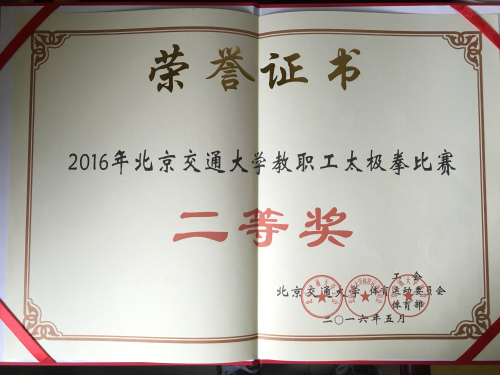 荣誉证书
2016年北京交通大学教职工太极拳比赛
二等奖
工会
北京交通大学 体育运动委员会
体育部
二〇一六年五月